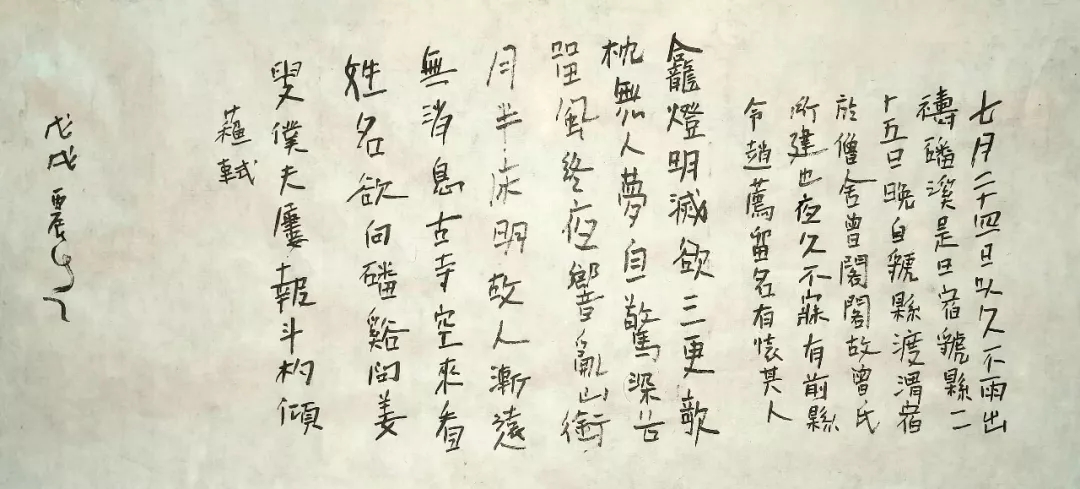 七月二十四日以久不雨出
禱磻溪是日宿虢縣二
十五日晚自虢縣渡渭宿
於僧舍曾閣閣故曾氏
所建也夜久不寐有前縣
令趙薦留名有懷其人
龕燈明滅欲三更欹
枕無人夢自驚深谷
留風終夜響亂山銜
月半床明故人漸遠
無消息古寺空來看
姓名欲向磻谿問姜
叟僕夫屢報斗杓傾
蘇軾
戊戌震